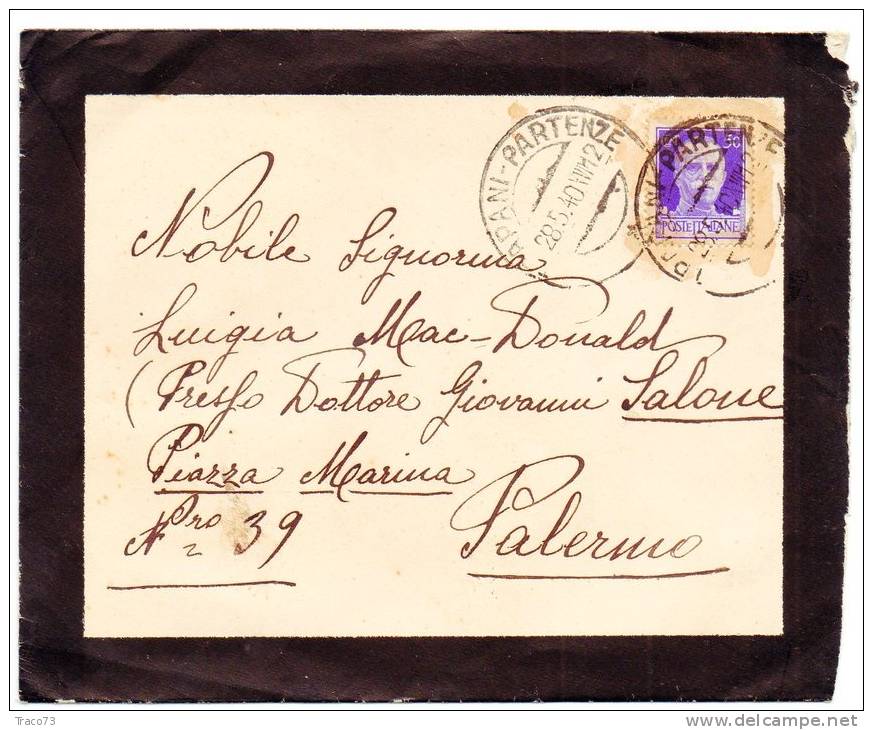 TRAPANI-PARTENZE
28.5.40.XVIII 21
TRAPANI-PARTENZE
50
POSTE ITALIANE
Nobile Signorina
Luigia Mac-Donald
(Presso Dottore Giovanni Salone
Piazza Marina
Nro 39
Palermo
Traco73
www.delcampe.net